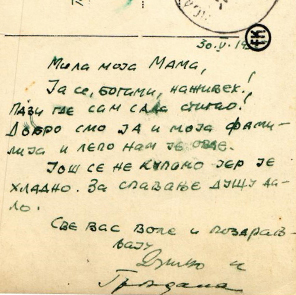 30.V.19
FK
Мила моја Мама,
Ја се, богами, наживех!
Пази где сам сада стигао!
Добро смо ја и моја фами-
лија и лепо нам је овде.
Још се не купамо јер је
хладно. За спавање душу да-
ло.
Све вас воле и поздрав-
љају
и
Гроздана